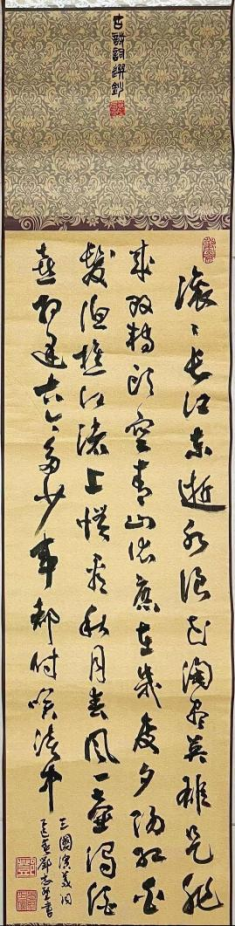 古詩詞選鈔
滚〻长江东逝水浪花淘尽英雄是非
成败转头空青山依旧在幾度夕阳红白
髮渔樵江渚上惯看秋月春风一壶浊酒
喜相逢古今多少事都付笑谈中
三國演義词
書